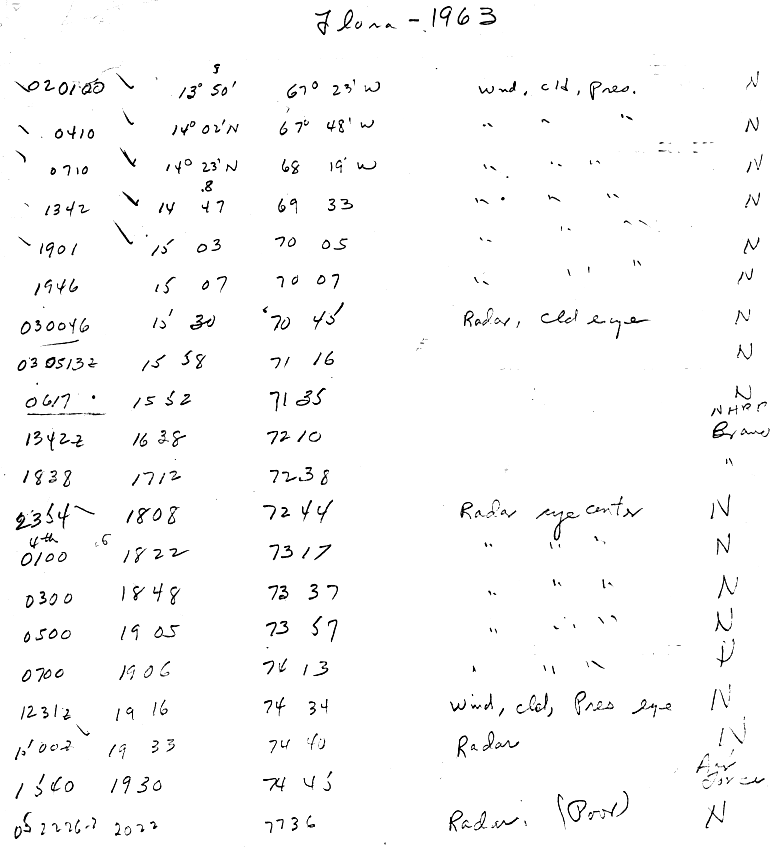 Flora - 1963
020100 13° 50' 67° 23' W Wind, cld, pres. N
0410 14° 02' N 67° 48' W " " " N
0710 14° 23' N 68 19' W " " " N
.8
1342 14 47 69 33 " " " N
1901 15 03 70 05 " " " N
1946 15 07 70 07 " " " N
030046 15 30 70 45 Radar, cld eye N
030513Z 15 58 71 16 N
0617 1552 7135 N
NHRP
1342Z 1638 7210
1838 1712 7238 "
2354 1808 7244 Radar eye center N
4th .5
0100 1822 7317 " " " N
0300 1848 73 37 " " " N
0500 19 05 73 57 " " " N
0700 1906 74 13 " " "
1231Z 19 16 74 34 Wind, cld, Pres eye N
1500Z 19 33 74 40 Radar N
Air
Force
1540 1930 74 45
2022 7736 Radar. (Poor) N